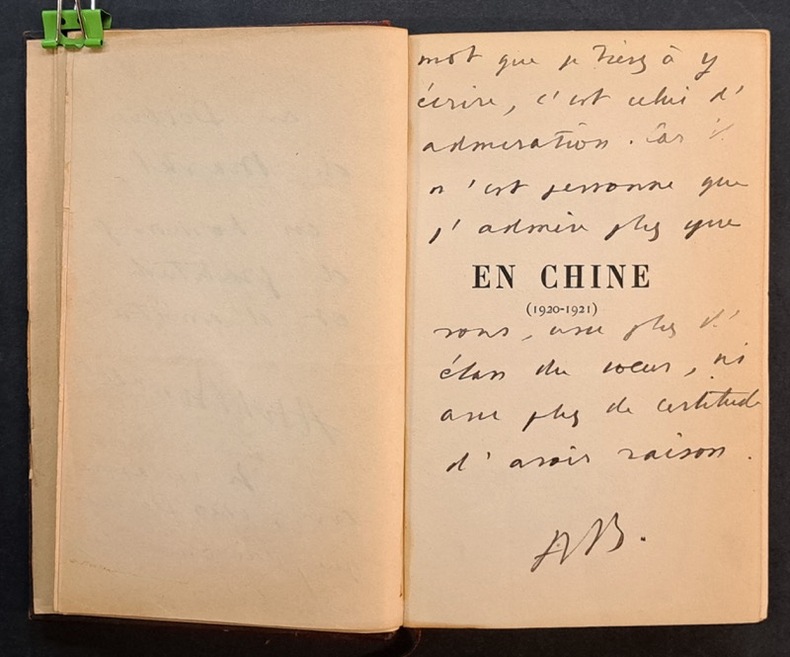 mot que je tiens à y
écrire, c'est celui d'
admiration. Car il
n'est personne que
j'admire plus que
EN CHINE
(1920-1921)
vous, avec plus d'
élan du coeur, ni
avec plus de certitude
d'avoir raison.
AB.